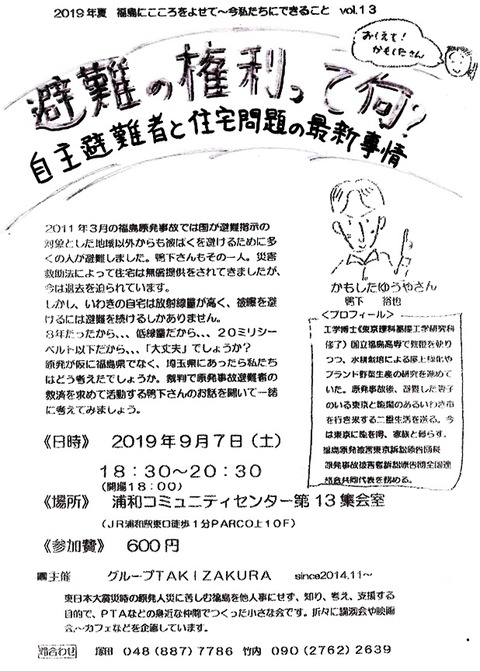 2019年夏 福島にこころをよせて～今私たちにできること vol.13
おしえて！
かもしたさん
避難の権利って何？
自主避難者と住宅問題の最新事情
2011年3月の福島原発事故では国が避難指示の
対象とした地域以外からも被ばくを避けるために多
くの人が避難しました。鴨下さんもその一人。災害
救助法によって住宅は無償提供をされてきましたが、
今は退去を迫られています。
しかし、いわきの自宅は放射線量が高く、被曝を避
けるには避難を続けるしかありません。
8年たったから、、、低線量だから、、、20ミリシー
ベルト以下だから、、、「大丈夫」でしょうか？
原発が仮に福島県でなく、埼玉県にあったら私たち
はどう考えたでしょうか。裁判で原発事故避難者の
救済を求めて活動する鴨下さんのお話を聞いて一緒
に考えてみましょう。
かもしたゆうやさん
鴨下 裕也
＜プロフィール＞
工学博士（東京理科基礎工学研究科
修了） 国立福島高専で教鞭を執り
つつ、水耕栽培による屋上緑化や
ブランド野菜生産の研究を進めて
いた。原発事故後、避難した妻子
のいる東京と職場のあるいわき市
を行き来する二重生活を送る。今
は東京に職を得、家族と暮らす。
福島原発被害東京訴訟原告団長
原発事故被害者訴訟原告団全国連
絡会共同代表を務める。
《日時》 2019年9月7日（土）
18：30～20：30
（開場18：00）
《場所》 浦和コミュニティセンター第13集会室
（JR浦和駅東口徒歩1分PARCO上10F）
《参加費》 600円
■主催 グループTAKIZAKURA since2014.11～
東日本大震災時の原発人災に苦しむ福島を他人事にせず、知り、考え、支援する
目的で、PTAなどの身近な仲間でつくった小さな会です。折々に講演会や映画
会、～カフェなどを企画しています。
問合わせ 塚田 048(887)7786 竹内 090(2762)2639